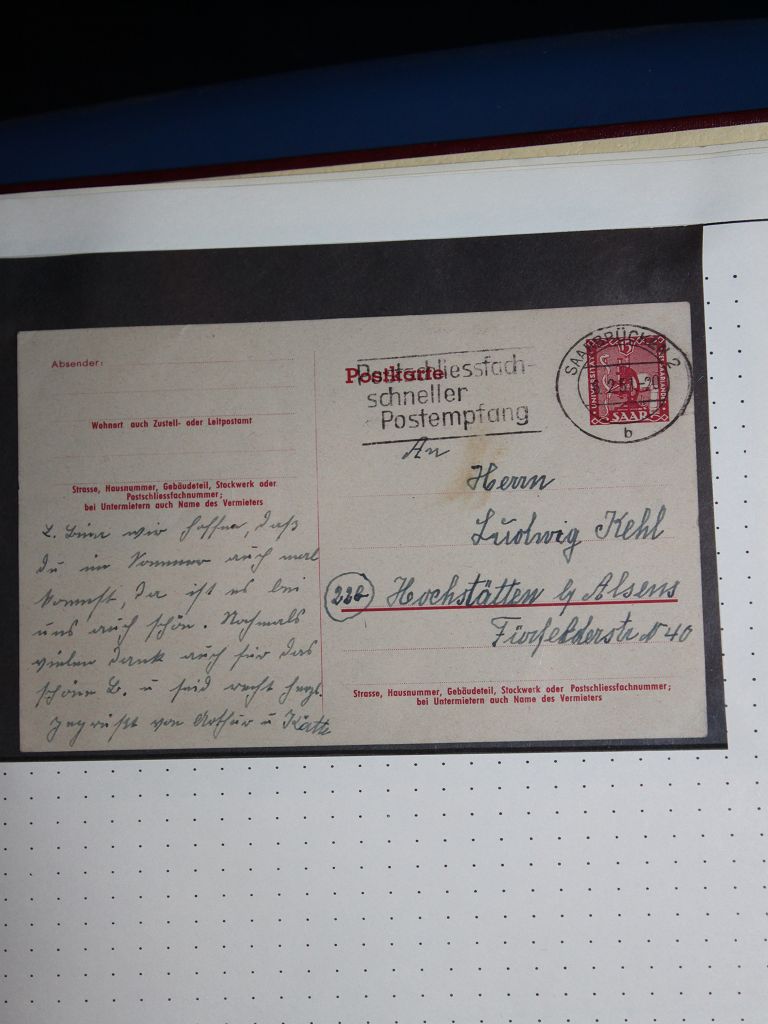 Absender:
Wohnort auch Zustell- oder Leitpostamt
Strasse, Hausnummer, Gebäudeteil, Stockwerk oder
Postschliessfachnummer;
bei Untermietern auch Name des Vermieters
wir hoffen, daß
du im Sommer auch mal
kommst, da ist es bei
uns auch schön. Nochmals
vielen Dank auch für das
schöne B. u seid recht herzl.
gegrüßt von Arthur u Käthe
Postkarte
Postschliessfach-
schneller
Postempfang
SAARBRÜCKEN 2
b
UNIVERSITÄT
SAAR
An
Herrn
Ludwig Kehl
(22b) Hochstätten b/ Alsens
Fürfelderstr N 40
Strasse, Hausnummer, Gebäudeteil, Stockwerk oder Postschliessfachnummer;
bei Untermietern auch Name des Vermieters